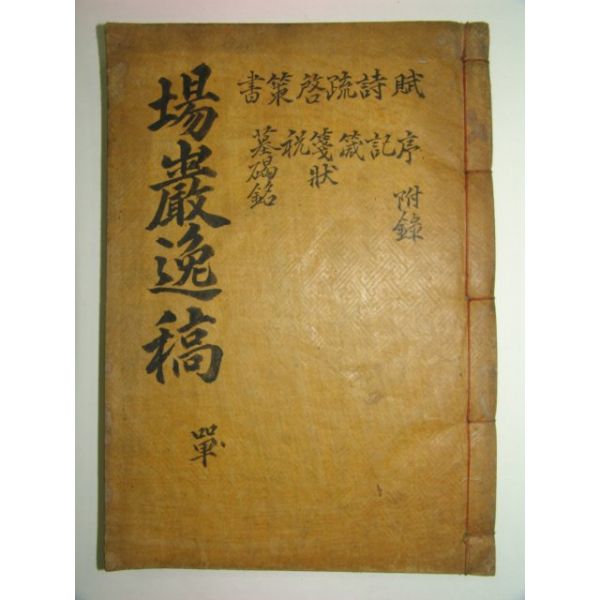 賦詩疏啓策書
序記箴箋狀祝墓碣銘
附錄
場巖逸稿
單